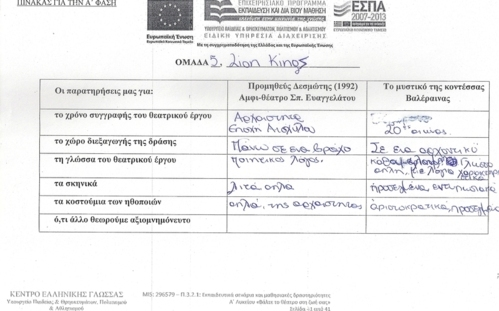 ΠΙΝΑΚΑΣ ΓΙΑ ΤΗΝ Α΄ ΦΑΣΗ
Ευρωπαϊκή Ένωση
ΕΠΙΧΕΙΡΗΣΙΑΚΟ ΠΡΟΓΡΑΜΜΑ
ΕΚΠΑΙΔΕΥΣΗ ΚΑΙ ΔΙΑ ΒΙΟΥ ΜΑΘΗΣΗ
ΕΙΔΙΚΗ ΥΠΗΡΕΣΙΑ ΔΙΑΧΕΙΡΙΣΗΣ
Με τη συγχρηματοδότηση της Ελλάδας και της Ευρωπαϊκής Ένωσης
ΕΣΠΑ
2007-2013
ΟΜΑΔΑ 5. Lion Kings
Οι παρατηρήσεις μας για:
Προμηθεύς Δεσμώτης (1992)
Αμφι-θέατρο Σπ. Ευαγγελάτου
Το μυστικό της κοντέσσας
Βαλέραινας
το χρόνο συγγραφής του θεατρικού έργου
Αρχαιότητα
Εποχή Αισχύλου
20ος αιώνας
το χώρο διεξαγωγής της δράσης
Πάνω σε ένα βράχο
Σε ένα αρχοντικό
τη γλώσσα του θεατρικού έργου
ποιητικός λόγος
απλή, με λόγια
τα σκηνικά
Λιτά απλά
προσεγμένα, εντυπωσιακά
τα κοστούμια των ηθοποιών
απλά, της αρχαιότητας
αριστοκρατικά, προσεγμένα
ό,τι άλλο θεωρούμε αξιομνημόνευτο
ΚΕΝΤΡΟ ΕΛΛΗΝΙΚΗΣ ΓΛΩΣΣΑΣ
Υπουργείο Παιδείας & Θρησκευμάτων, Πολιτισμού
& Αθλητισμού
MIS: 296579 – Π.3.2.1: Εκπαιδευτικά σενάρια και μαθησιακές δραστηριότητες
Α΄ Λυκείου «Βάλτε το θέατρο στη ζωή σας»